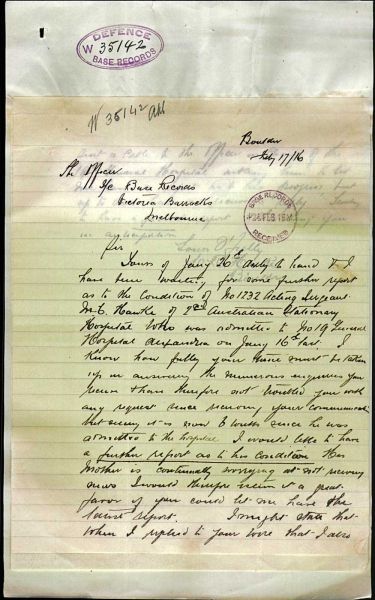 DEFENCE
W 35142
BASE RECORDS
W 35142
Boulder
Feby 17/16
The Officer
I/c Base Records
Victoria Barracks
Melbourne
BASE RECORDS
FEB 1916
RECEIVED
Sir
Yours of Jany 26th duly to hand & I
have been waiting for some further report
as to the Condition of No 1232 Acting Sergeant
Hawke of 2nd Australian Stationary
Hospital who was admitted to No 19 General
Hospital Alexandria on Jany 16th last. I
know how fully your time must be taken
up in answering the numerous enquiries you
receive & have therefore not troubled you with
any request since receiving your communication
but seeing it is now 5 weeks since he was
admitted to the hospital I would like to have
a further report as to his Condition. His
Mother is Continually worrying at not receiving
news I would therefore esteem it a great
favor if you could let me have the
latest report. I might state that
when I replied to your wire that I also